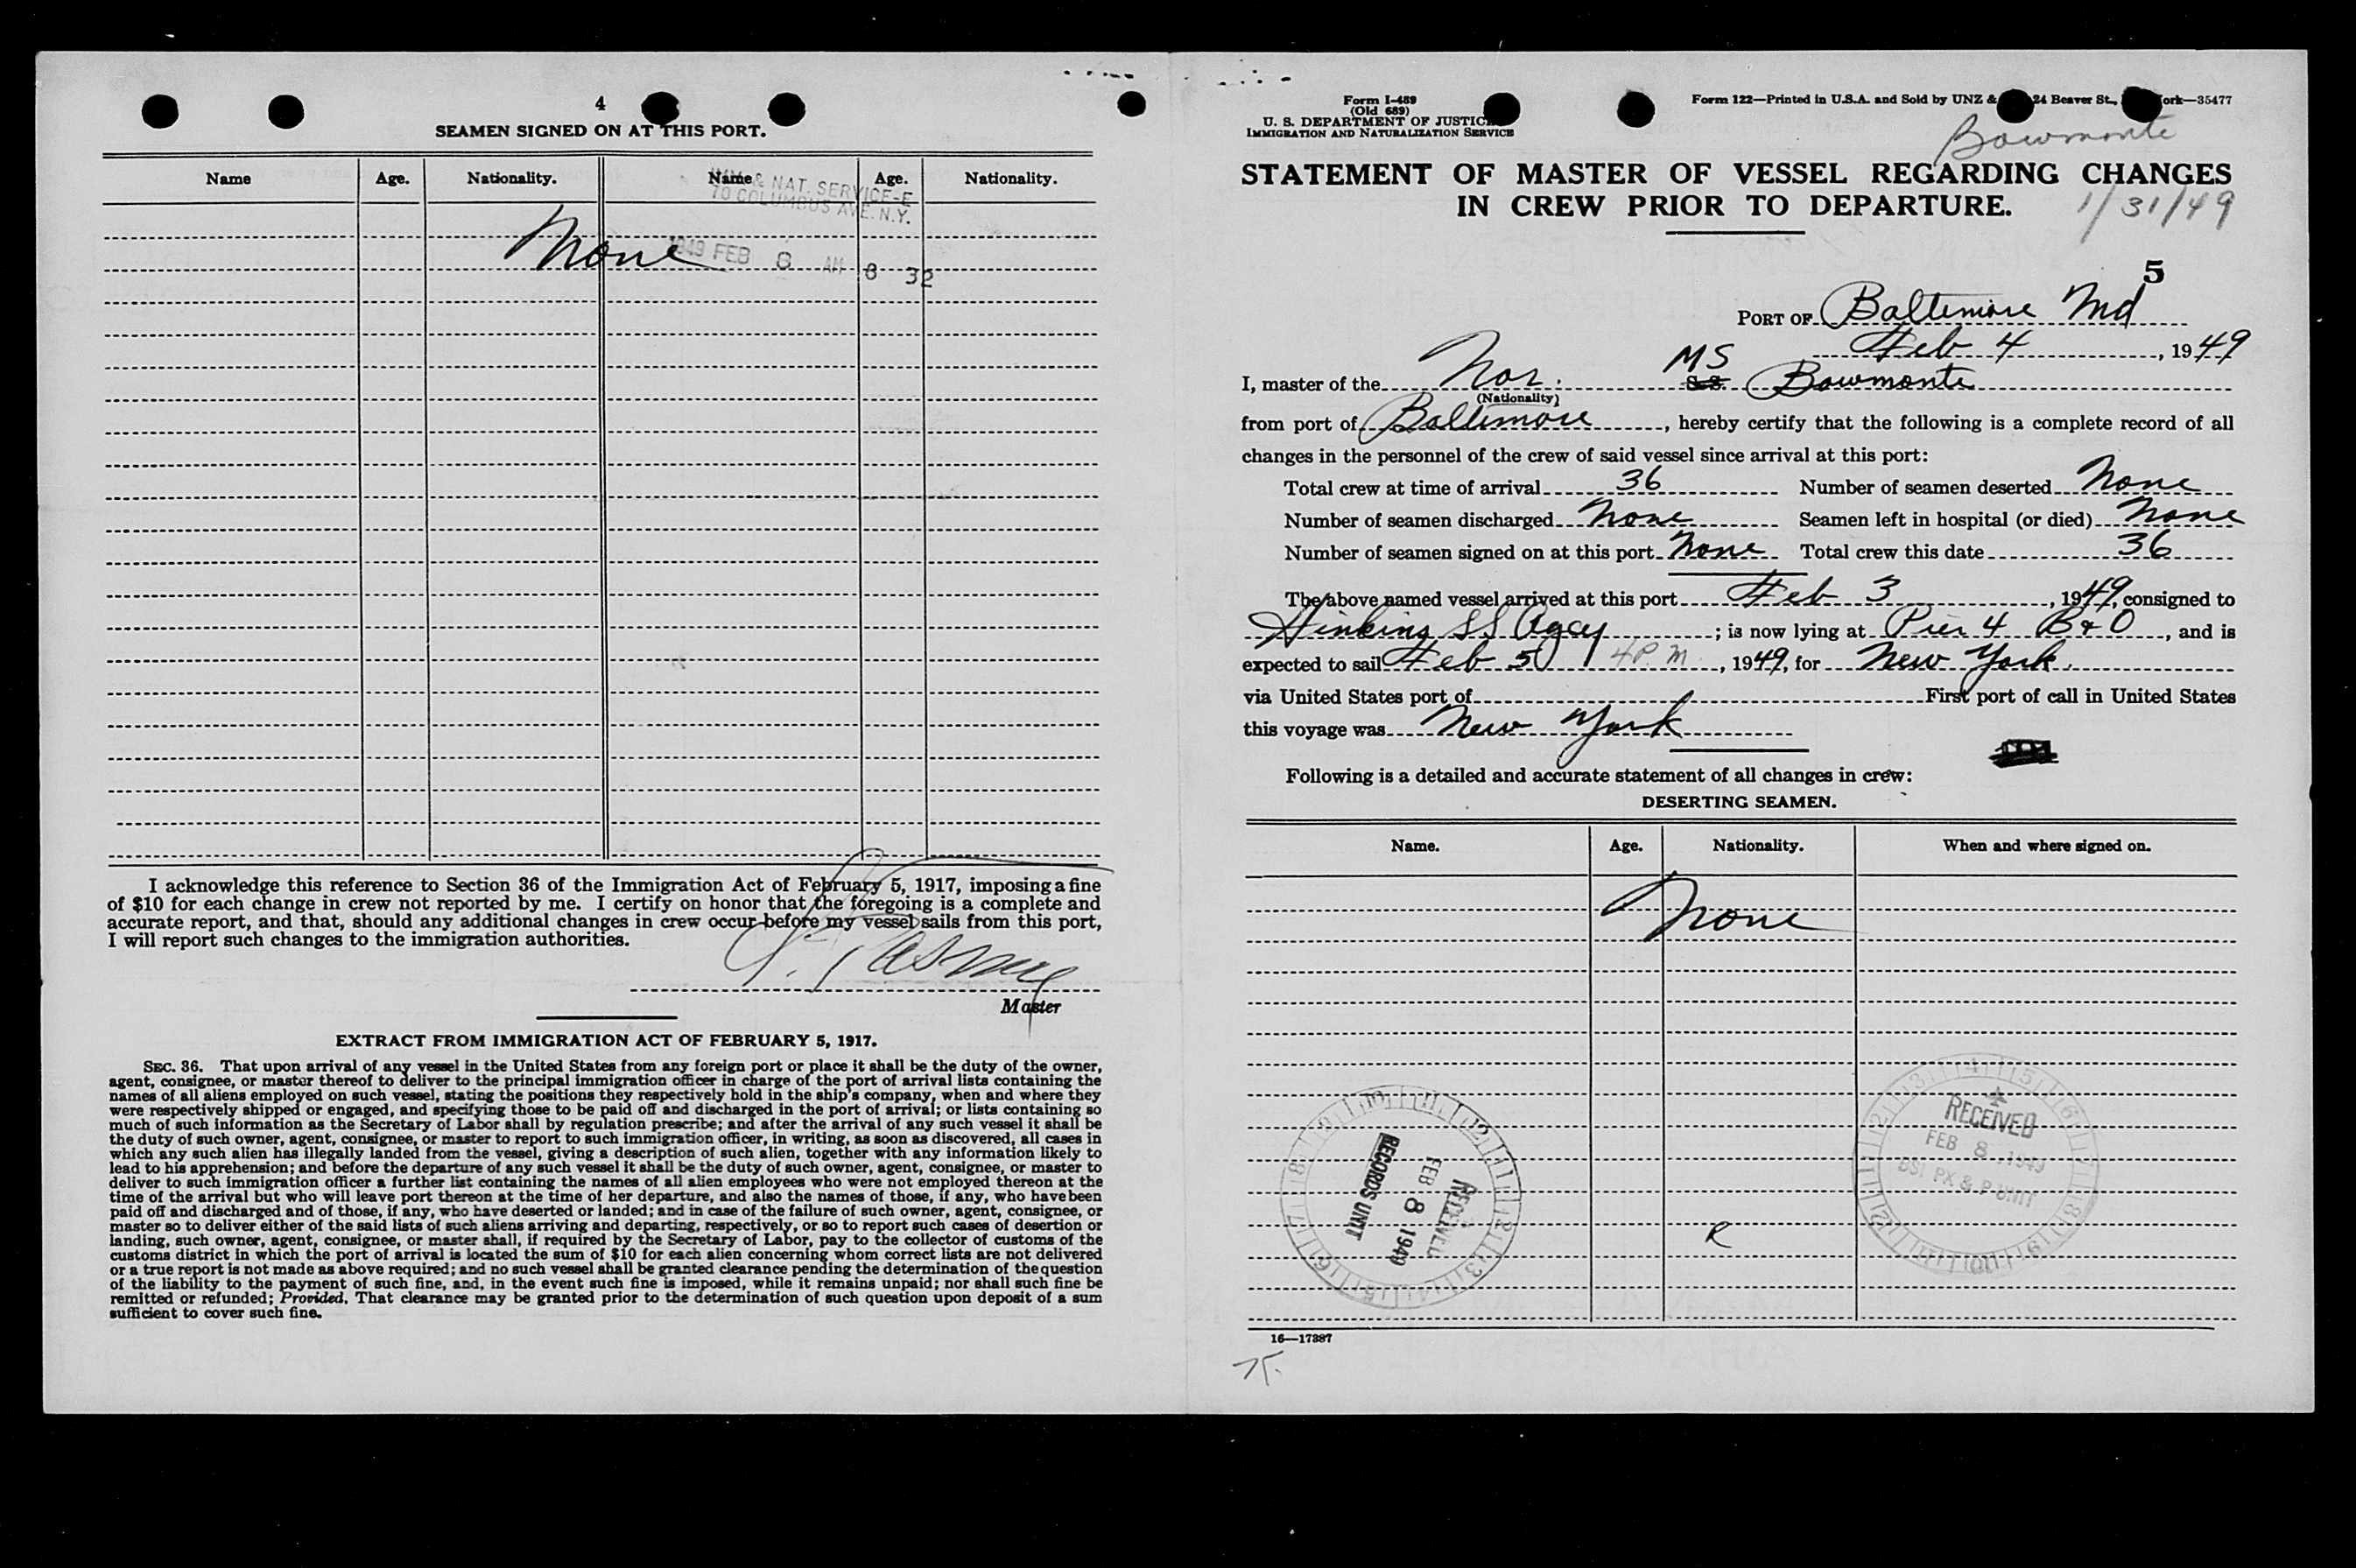 4
SEAMEN SIGNED ON AT THIS PORT.
Name Age. Nationality. Name Age. Nationality.
& NAT. SERVICE-E
70 COLUMBUS AVE. N.Y.
None
1949 FEB 8 AM 8 32
I acknowledge this reference to Section 36 of the Immigration Act of February 5, 1917, imposing a fine
of $10 for each change in crew not reported by me. I certify on honor that the foregoing is a complete and
accurate report, and that, should any additional changes in crew occur before my vessel sails from this port,
I will report such changes to the immigration authorities.
Master
EXTRACT FROM IMMIGRATION ACT OF FEBRUARY 5, 1917.
SEC. 36. That upon arrival of any vessel in the United States from any foreign port or place it shall be the duty of the owner,
agent, consignee, or master thereof to deliver to the principal immigration officer in charge of the port of arrival lists containing the
names of all aliens employed on such vessel, stating the positions they respectively hold in the ship's company, when and where they
were respectively shipped or engaged, and specifying those to be paid off and discharged in the port of arrival; or lists containing so
much of such information as the Secretary of Labor shall by regulation prescribe; and after the arrival of any such vessel it shall be
the duty of such owner, agent, consignee, or master to report to such immigration officer, in writing, as soon as discovered, all cases in
which any such alien has illegally landed from the vessel, giving a description of such alien, together with any information likely to
lead to his apprehension; and before the departure of any such vessel it shall be the duty of such owner, agent, consignee, or master to
deliver to such immigration officer a further list containing the names of all alien employees who were not employed thereon at the
time of the arrival but who will leave port thereon at the time of her departure, and also the names of those, if any, who have been
paid off and discharged and of those, if any, who have deserted or landed; and in case of the failure of such owner, agent, consignee, or
master so to deliver either of the said lists of such aliens arriving and departing, respectively, or so to report such cases of desertion or
landing, such owner, agent, consignee, or master shall, if required by the Secretary of Labor, pay to the collector of customs of the
customs district in which the port of arrival is located the sum of $10 for each alien concerning whom correct lists are not delivered
or a true report is not made as above required; and no such vessel shall be granted clearance pending the determination of the question
of the liability to the payment of such fine, and, in the event such fine is imposed, while it remains unpaid; nor shall such fine be
remitted or refunded; Provided, That clearance may be granted prior to the determination of such question upon deposit of a sum
sufficient to cover such fine.
Form I-489
(Old 689)
U. S. DEPARTMENT OF JUSTICE
IMMIGRATION AND NATURALIZATION SERVICE
Form 122—Printed in U.S.A. and Sold by UNZ & 24 Beaver St., ork—35477
Bowmonte
STATEMENT OF MASTER OF VESSEL REGARDING CHANGES
IN CREW PRIOR TO DEPARTURE.
1/31/49
5
PORT OF Baltimore Md
Feb 4, 1949
I, master of the Nor. MS S.S. Bowmonte
(Nationality)
from port of Baltimore, hereby certify that the following is a complete record of all
changes in the personnel of the crew of said vessel since arrival at this port:
Total crew at time of arrival 36 Number of seamen deserted None
Number of seamen discharged None Seamen left in hospital (or died) None
Number of seamen signed on at this port None Total crew this date 36
The above named vessel arrived at this port Feb 3, 1949, consigned to
SS Agcy; is now lying at Pier 4 B & O, and is
expected to sail Feb 5 4 P. M., 1949, for New York.
via United States port of First port of call in United States
this voyage was New York
Following is a detailed and accurate statement of all changes in crew:
DESERTING SEAMEN.
Name. Age. Nationality. When and where signed on.
None
RECEIVED
FEB 8 1949
RECORDS UNIT
RECEIVED
FEB 8 1949
BSI PX & P UNIT
R
16—17387